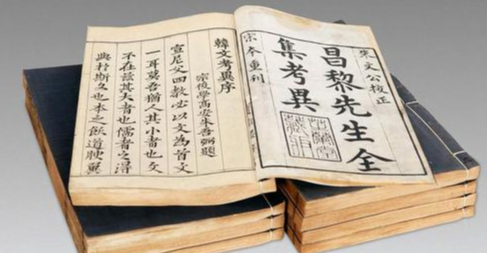 宋文公校正
昌黎先生全
集考異
宋本重刊
韓文考異序
宗後學高安朱吾弼題
宣尼父四教必以文為首文
一耳莫吾猶人其小者也文
不在茲其大者也儒者之得
與於斯文也本之